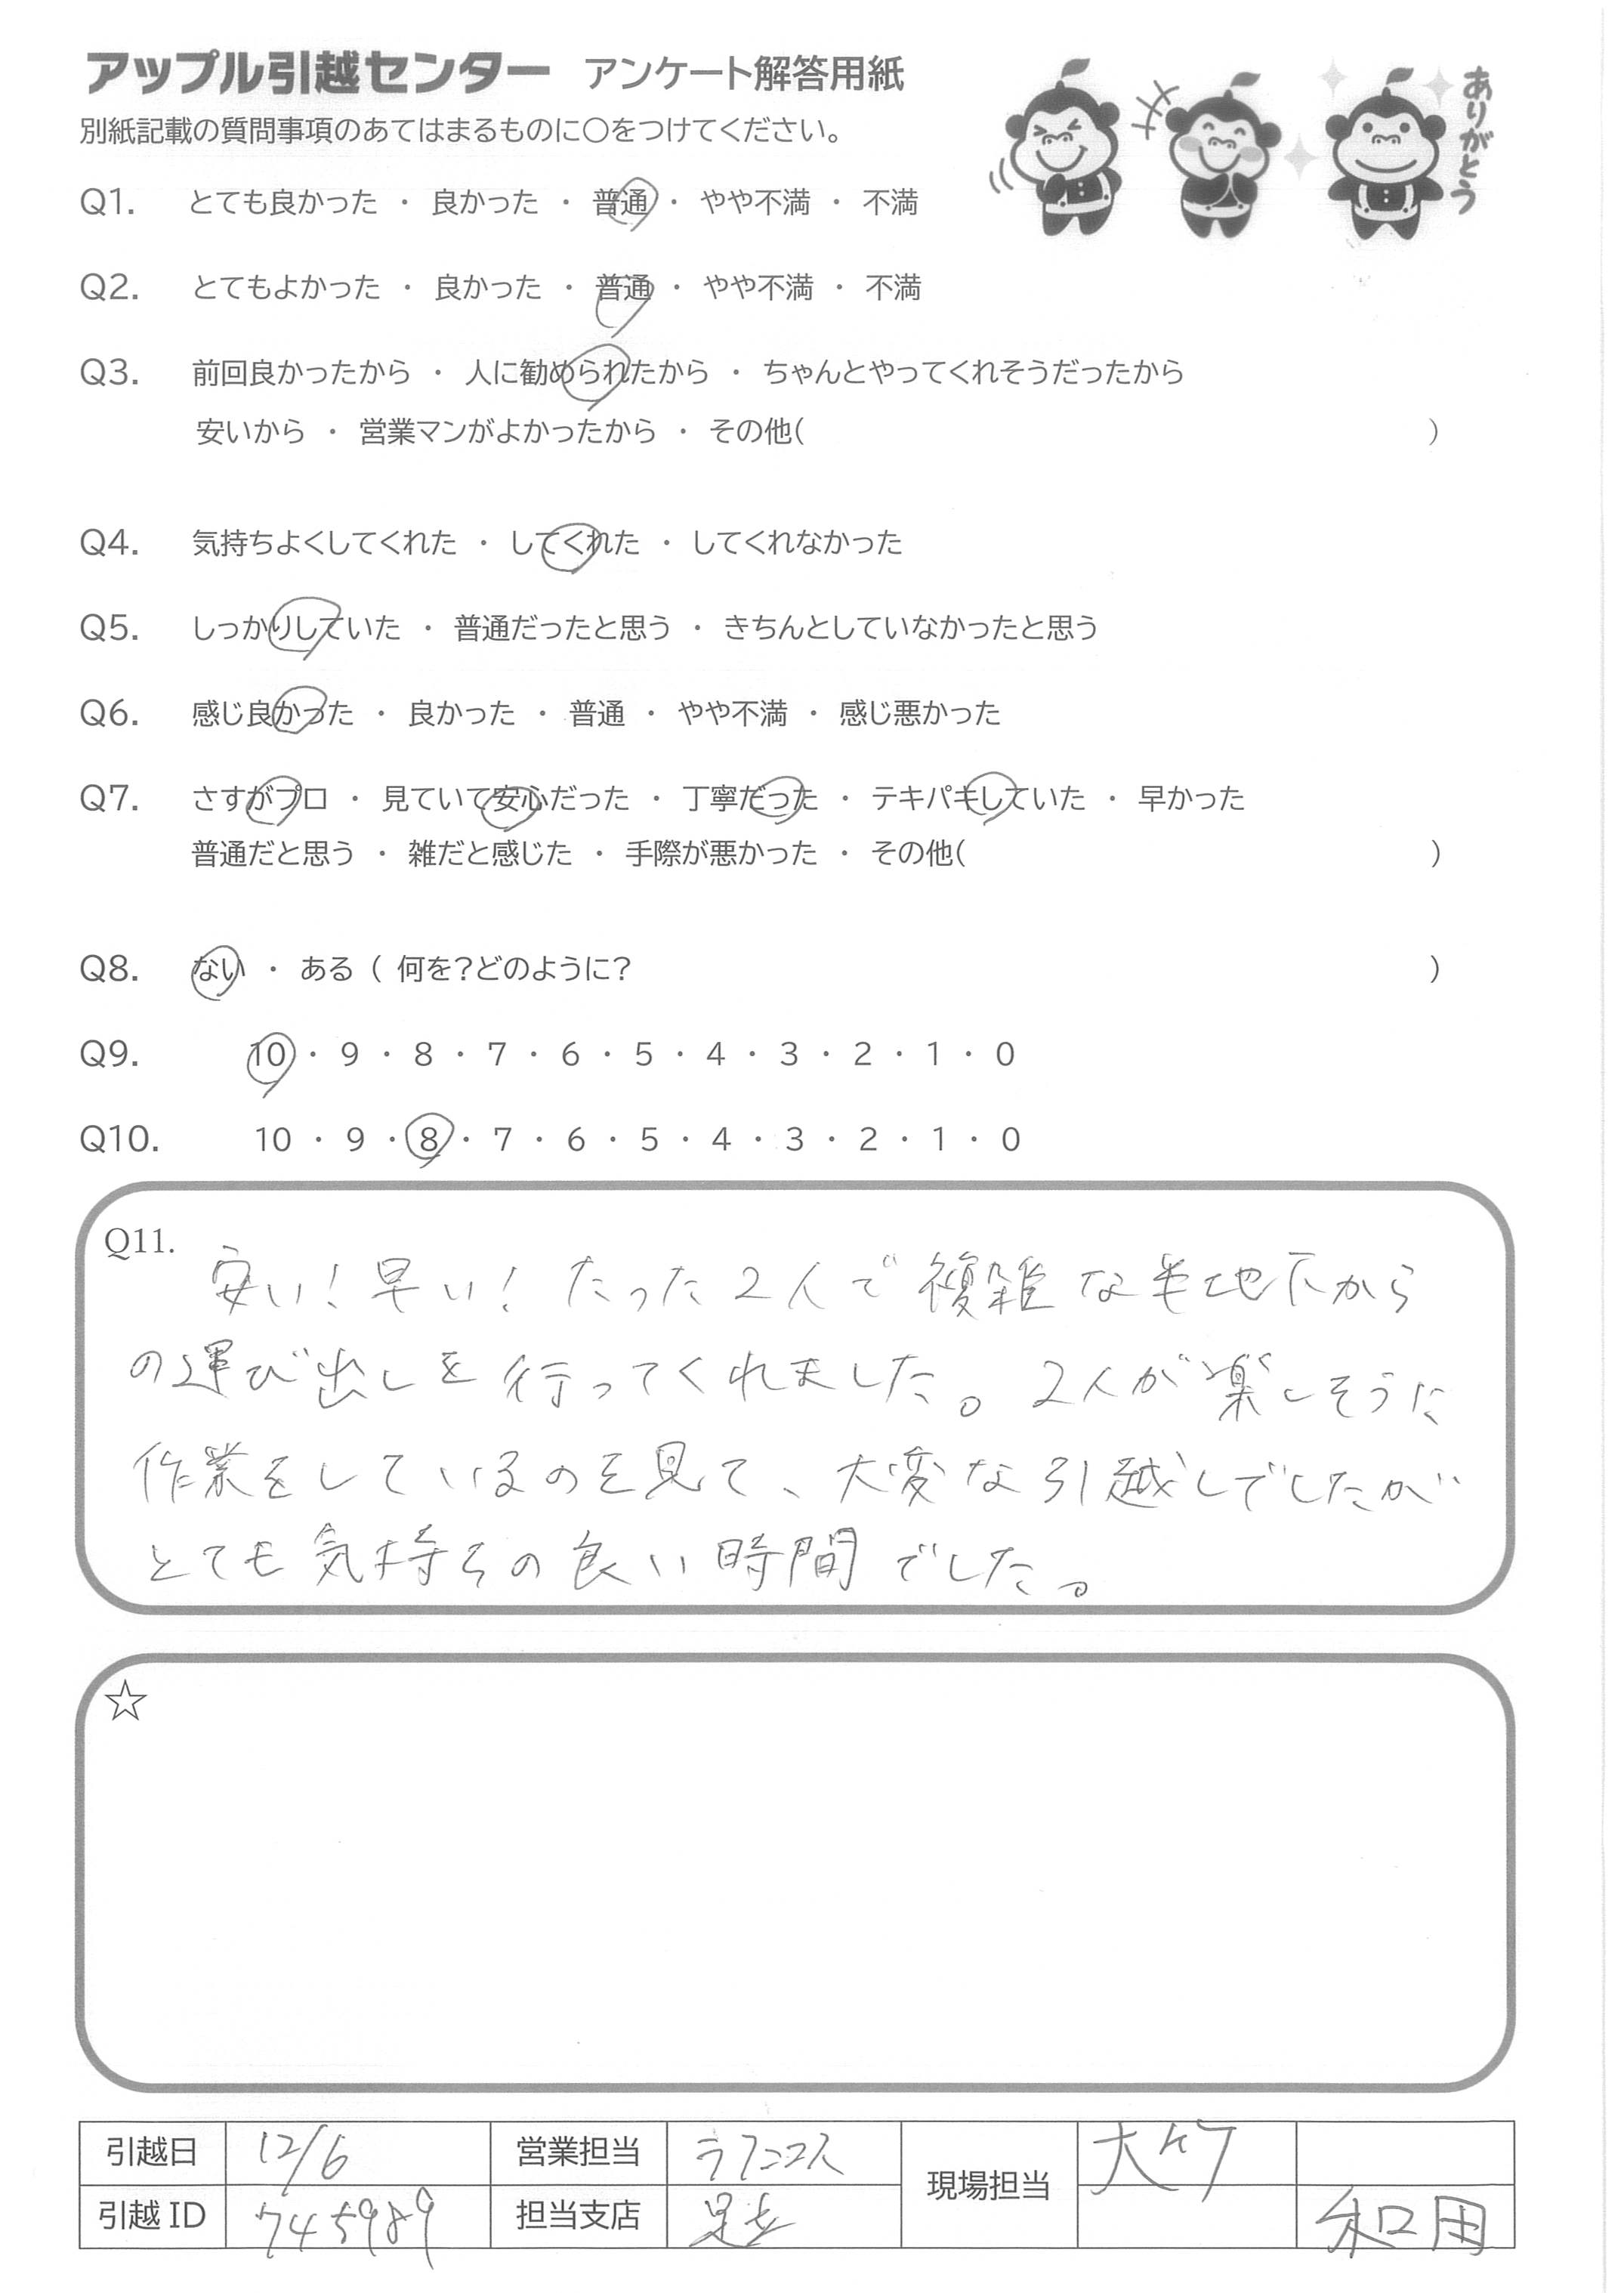 アップル引越センター アンケート解答用紙
別紙記載の質問事項のあてはまるものに〇をつけてください。
ありがとう
Q1. とても良かった ・ 良かった ・ 普通 ・ やや不満 ・ 不満
Q2. とてもよかった ・ 良かった ・ 普通 ・ やや不満 ・ 不満
Q3. 前回良かったから ・ 人に勧められたから ・ ちゃんとやってくれそうだったから
安いから ・ 営業マンがよかったから ・ その他( )
Q4. 気持ちよくしてくれた ・ してくれた ・ してくれなかった
Q5. しっかりしていた ・ 普通だったと思う ・ きちんとしていなかったと思う
Q6. 感じ良かった ・ 良かった ・ 普通 ・ やや不満 ・ 感じ悪かった
Q7. さすがプロ ・ 見ていて安心だった ・ 丁寧だった ・ テキパキしていた ・ 早かった
普通だと思う ・ 雑だと感じた ・ 手際が悪かった ・ その他( )
Q8. ない ・ ある ( 何を?どのように? )
Q9. 10 ・ 9 ・ 8 ・ 7 ・ 6 ・ 5 ・ 4 ・ 3 ・ 2 ・ 1 ・ 0
Q10. 10 ・ 9 ・ 8 ・ 7 ・ 6 ・ 5 ・ 4 ・ 3 ・ 2 ・ 1 ・ 0
Q11. 安い!早い!たった2人で複雑な半地下から
の運び出しを行ってくれました。2人が楽しそうに
作業をしているのを見て、大変な引越しでしたが
とても気持ちの良い時間でした。
☆
引越日 12/6 営業担当 現場担当 大竹
引越ID 745989 担当支店 足立 和田